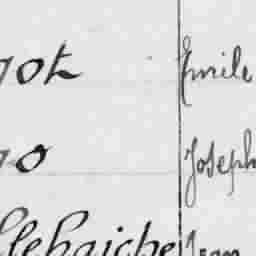 got Emile
go Joseph
llehaiche Jean